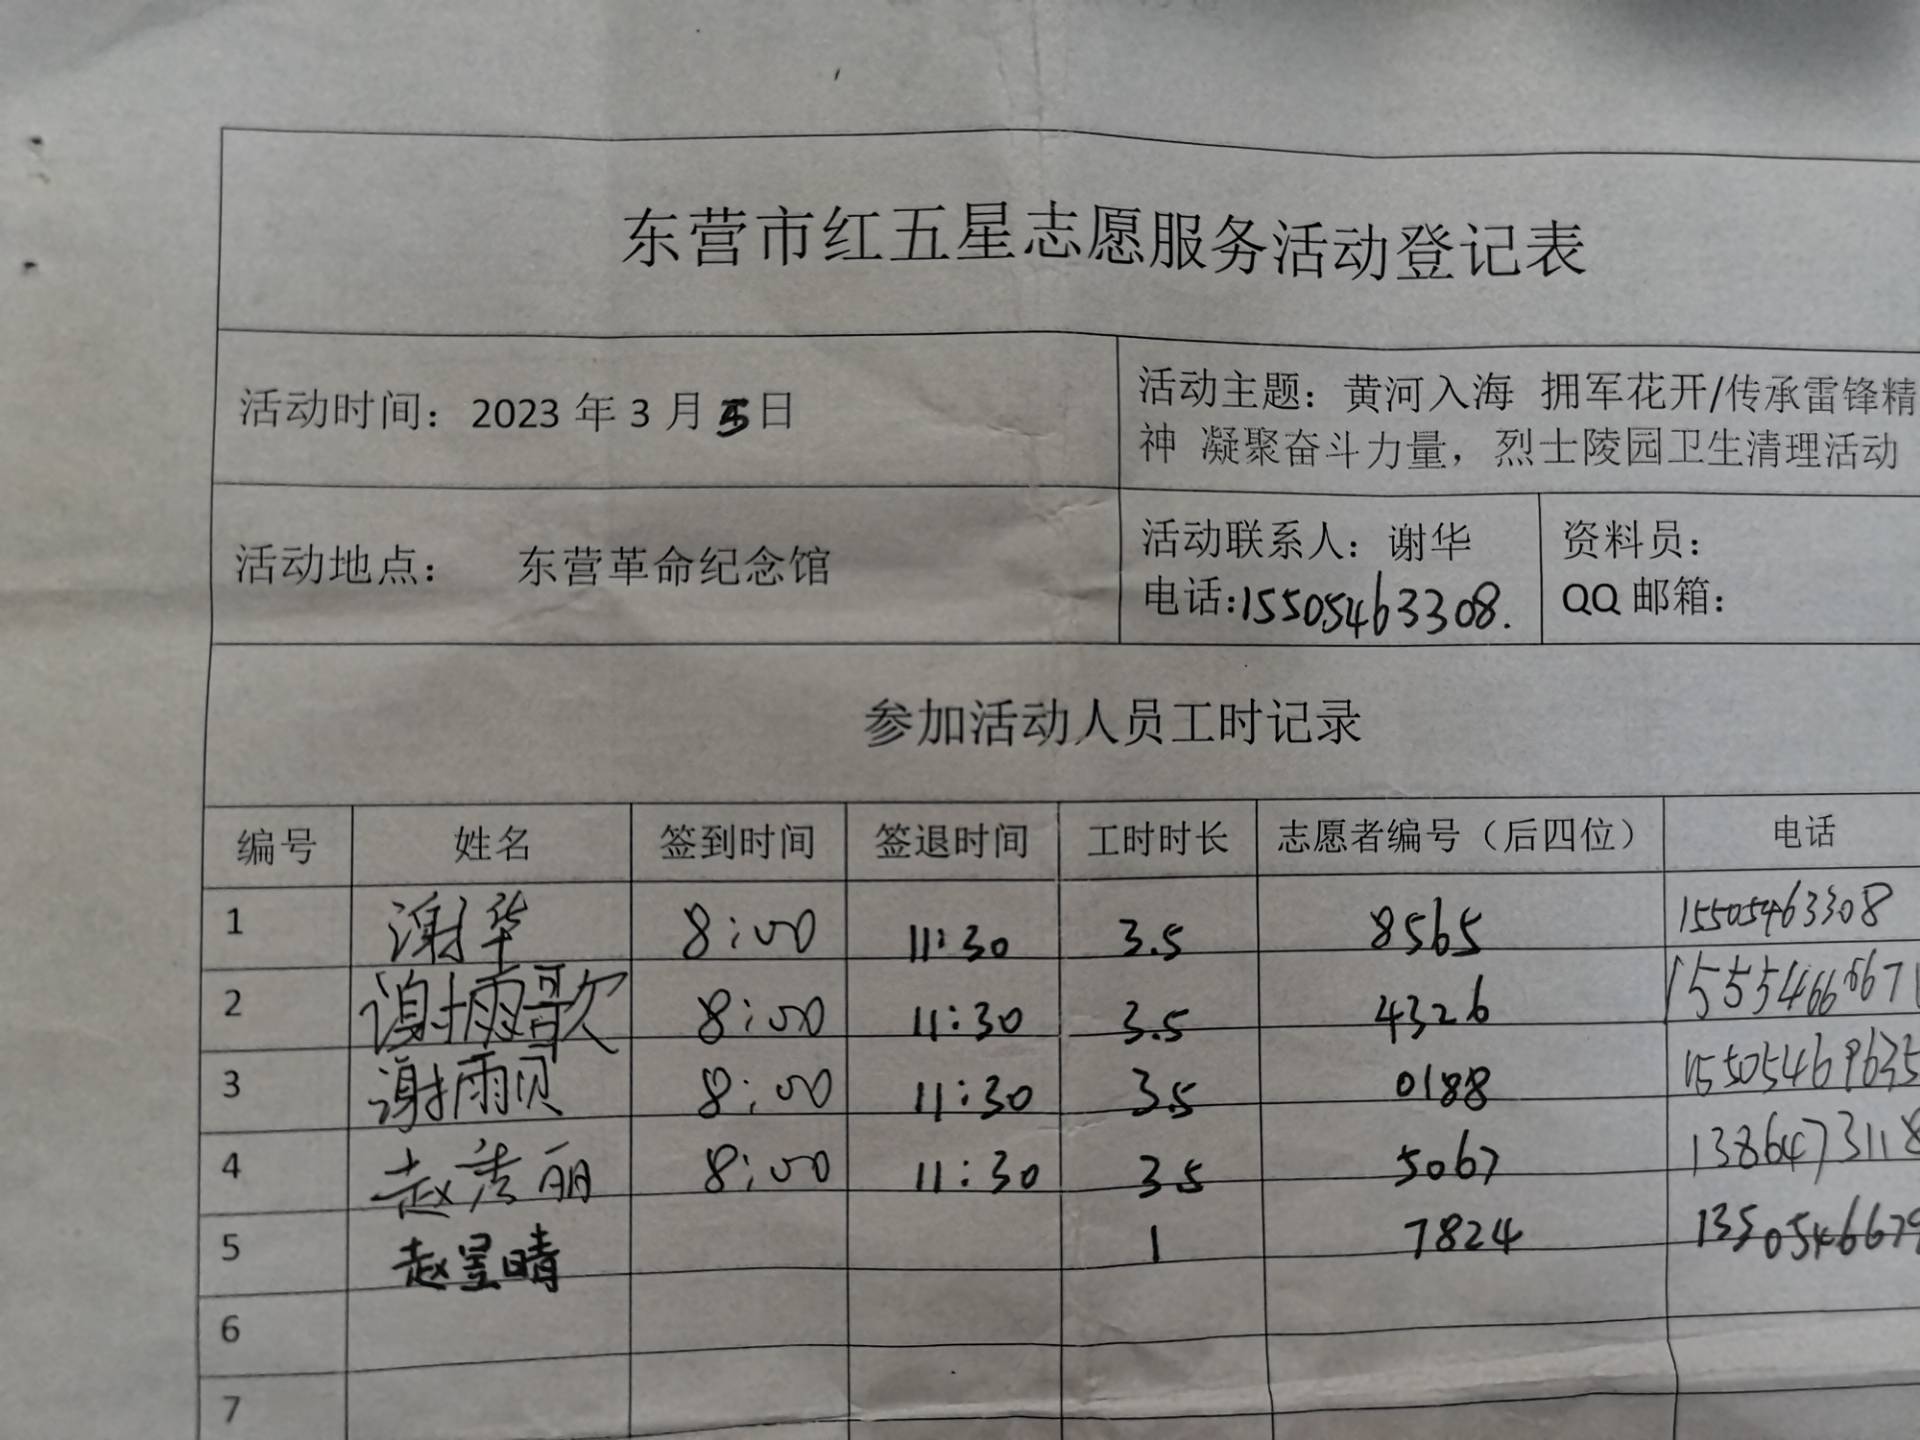 东营市红五星志愿服务活动登记表
活动时间：2023 年 3 月 5 日
活动主题：黄河入海 拥军花开/传承雷锋精
神 凝聚奋斗力量，烈士陵园卫生清理活动
活动地点： 东营革命纪念馆
活动联系人：谢华
电话:15505463308.
资料员：
QQ 邮箱：
参加活动人员工时记录
编号 姓名 签到时间 签退时间 工时时长 志愿者编号（后四位） 电话
1 谢华 8:00 11:30 3.5 8565 15505463308
2 谢雨歌 8:00 11:30 3.5 4326
3 谢雨贝 8:00 11:30 3.5 0188 15505469635
4 赵秀丽 8:00 11:30 3.5 5067 1386473118
5 赵昱晴 1 7824 13505466679
6
7